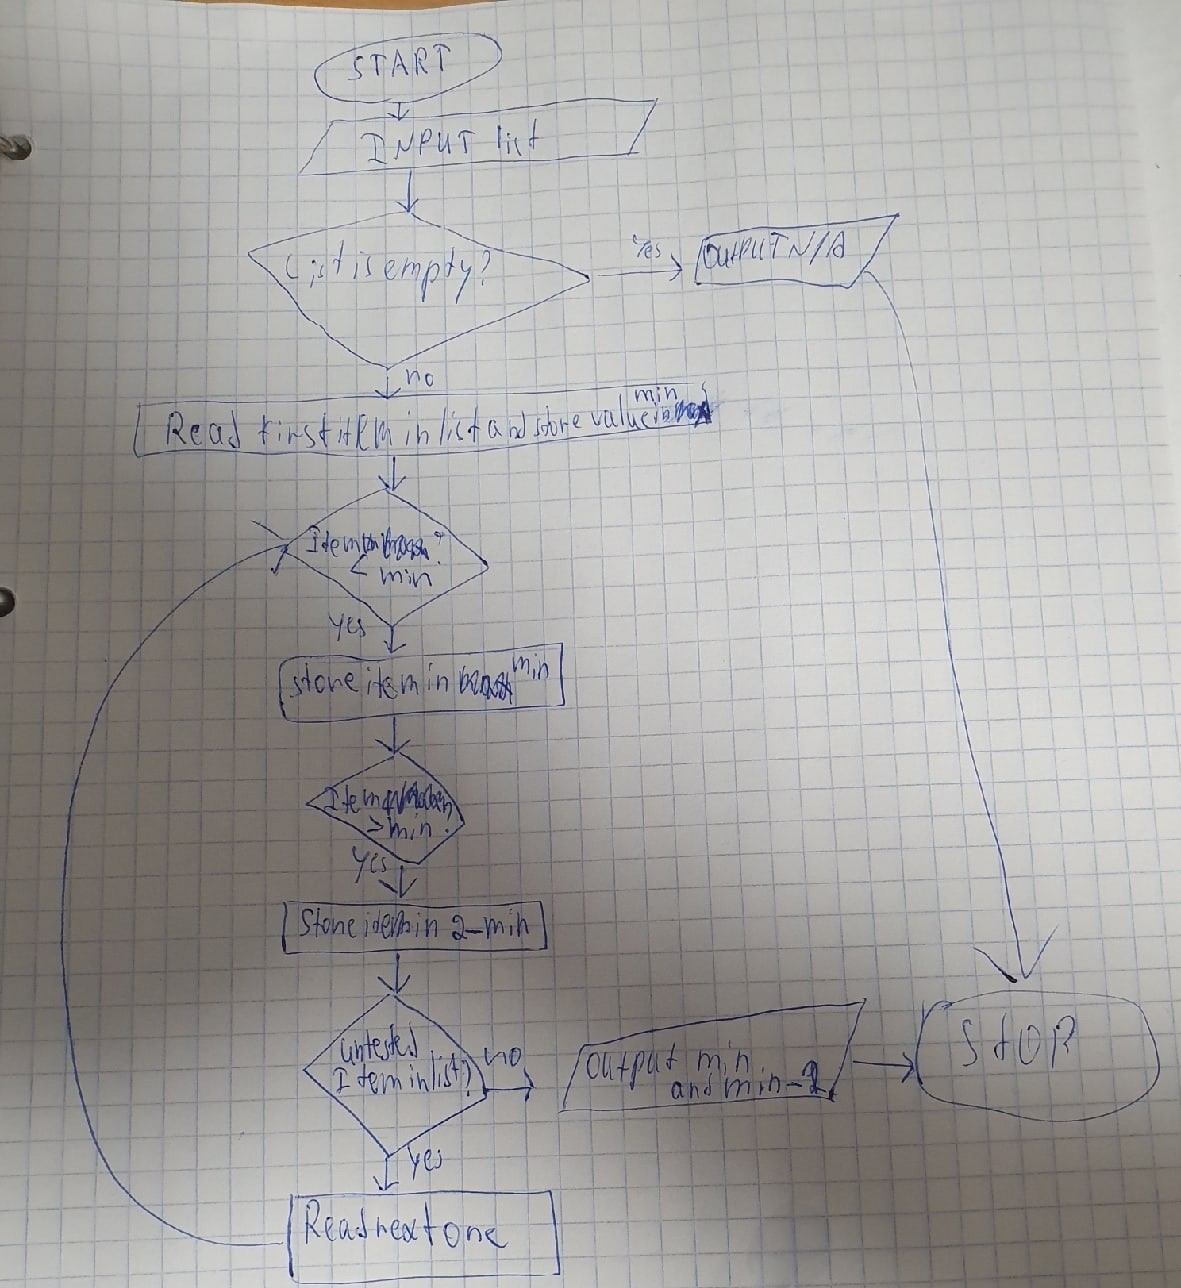 START
INPUT list
List is empty?
Yes
OUTPUT N/A
no
min
Read first item in list and store value in
Item
< min
yes
store item in min
Item
> min
yes
Store item in 2-min
untested
Item in list?
no
output min
and min-2
STOP
yes
Read next one